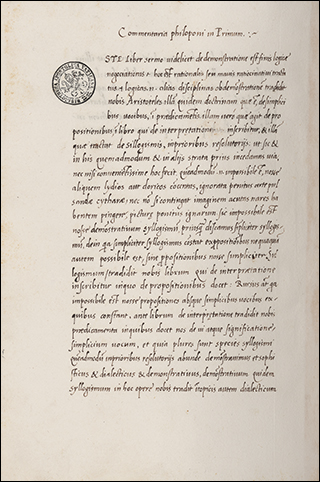 Commentaria philoponi in Primum
STI Liber sermo videlicet de demonstratione est finis logice
negociationis & hoc est rationalis seu mavis ratiocinatiui tractatus
& logices n. alias disciplinas ob demonstratione tradidit
nobis Aristoteles illa quidem doctrinam quae est de simplicibus
uocibus, i praedicamentis. illam uero quae agit de propositionibus
i libro qui de interpretatione inscribitur, & illa
quae tractat de sillogismis, i prioribus resolutorijs. ut sic &
in his quemadmodum & in alijs strata prius incedamus uia,
nec nisi convenientissime hoc fecit. quemadmodum n. impossibile est, nosse
aliquem lydios aut doricos cocentus, ignorata penitus arte pulsandae
cytharae; nec no si contingat imaginem acutas nares habentem
pingere, picturae penitus ignarum: sic impossibile est
nosse demonstrativum syllogismum priusquam discamus simpliciter syllogismum,
dein quia simpliciter syllogismus cōstat ex propositionibus nequaquam
autem possibile est, sine propositionibus nosse simpliciter syllogismum
tradidit nobis librum qui de interpretatione
inscribitur in quo de propositionibus docet: Rursus at quia
impossibile est nosse propositiones absque simplicibus uocibus ex
quibus constant, ante librum de interpretatione tradidit nobis
praedicamenta in quibus docet nos de ui atque significatione
simplicium uocum, et quia plures sunt species syllogismi
quemadmodum in prioribus resolutorijs abunde demonstravimus et sophisticus
& dialecticus & demonstrativus, demonstrativum quidem
syllogismum in hoc opere nobis tradit in topicis autem dialecticum